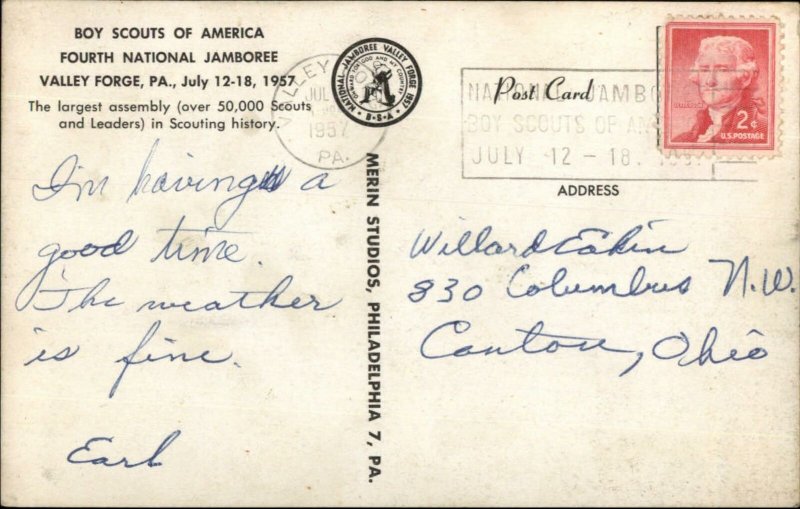 BOY SCOUTS OF AMERICA
FOURTH NATIONAL JAMBOREE
VALLEY FORGE, PA., July 12-18, 1957
The largest assembly (over 50,000 Scouts
and Leaders) in Scouting history.
I'm having a
good time.
The weather
is fine.
Earl
NATIONAL JAMBOREE VALLEY FORGE 1957
ONWARD FOR GOD AND MY COUNTRY
B·S·A
VALLEY
JUL
1957
PA.
MERIN STUDIOS, PHILADELPHIA 7, PA.
Post Card
NATIONAL JAMBO
BOY SCOUTS OF AM
JULY 12 - 18.
2¢
U.S. POSTAGE
ADDRESS
Willard Eakin
830 Columbus N.W.
Canton, Ohio